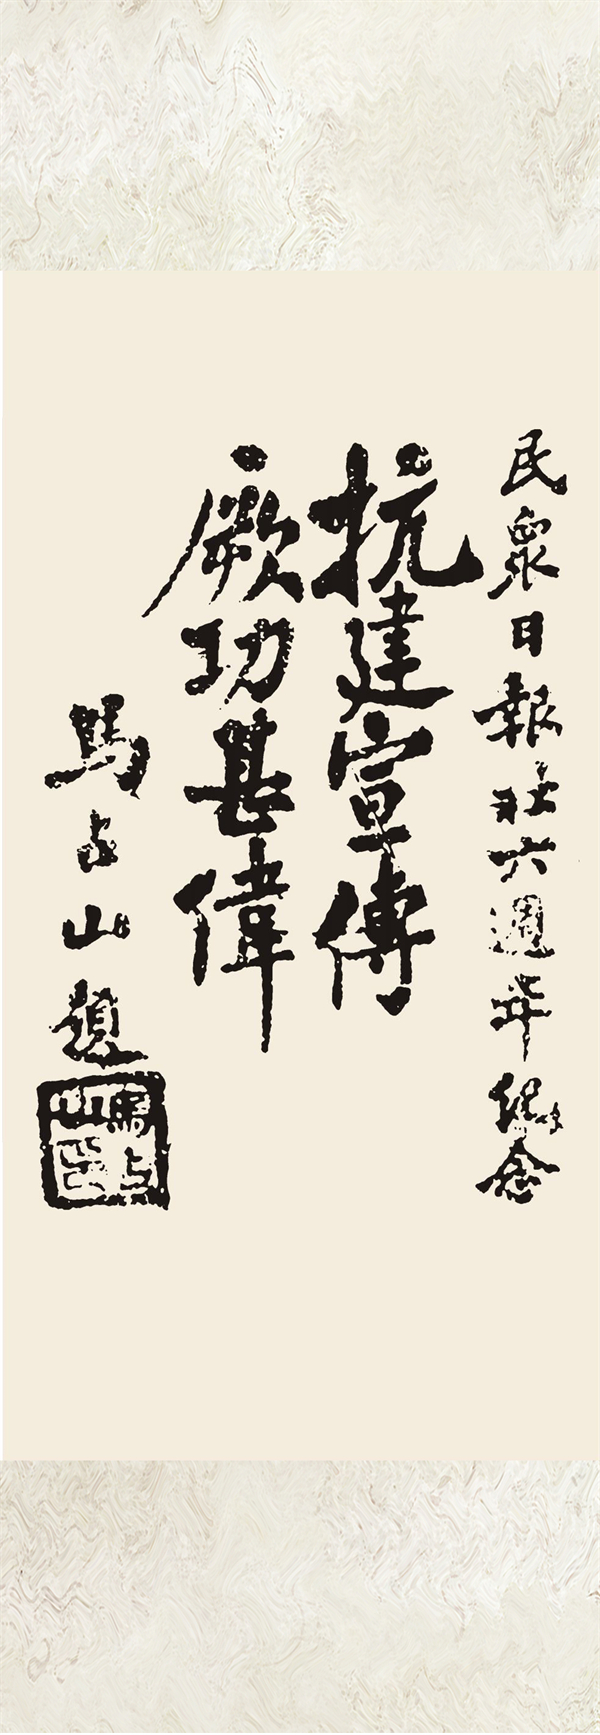 民衆日報社六週年紀念
抗建宣傳
厥功甚偉
馬占山題
馬占山印